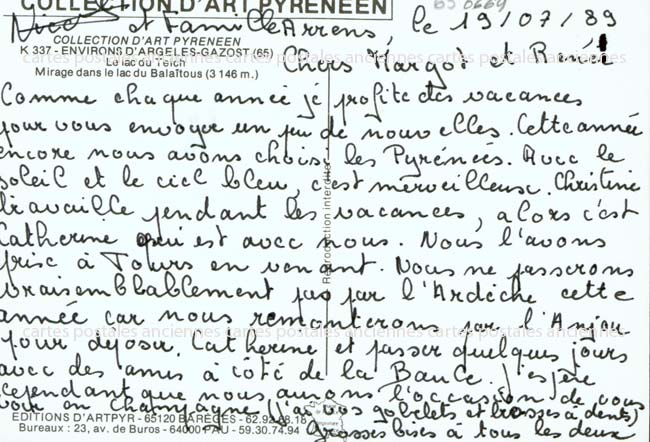 COLLECTION D'ART PYRENEEN
BS 0669
Nico et Famille Arrens, le 19/07/89
COLLECTION D'ART PYRENEEN
K 337 - ENVIRONS D'ARGELES-GAZOST (65)
Le lac du Tech
Mirage dans le lac du Balaïtous (3 146 m.)
Chers Margot et René
cartes postales anciennes cartes postales anciennes cartes postales anciennes
Comme chaque année je profite des vacances
pour vous envoyer un peu de nouvelles. Cette année
encore nous avons choisi les Pyrénées. Avec le
soleil et le ciel bleu, c'est merveilleux. Christine
travaille pendant les vacances, alors c'est
Catherine qui est avec nous. Nous l'avons
prise à Tours en venant. Nous ne passerons
vraisemblablement pas par l'Ardèche cette
année car nous remonterons par l'Anjou
cartes postales anciennes cartes postales anciennes cartes postales anciennes
pour déposer Catherine et passer quelques jours
avec des amis à côté de la Baule. J'espère
cependant que nous aurons l'occasion de vous
voir en Champagne (j'ai vos gobelets et brosses à dents)
Grosses bises à tous les deux
Reproduction interdite
EDITIONS D'ARTPYR - 65120 BAREGES - 62.92.68.18
Bureaux : 23, av. de Buros - 64000 PAU - 59.30.74.94